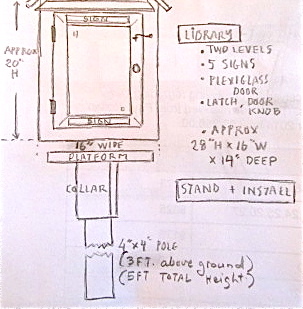 SIGN
APPROX
20"
H
SIGN
16" WIDE
PLATFORM
COLLAR
4"x4" POLE
(3FT. above ground)
(5FT TOTAL Height)
LIBRARY
• TWO LEVELS
• 5 SIGNS
• PLEXIGLASS
DOOR
• LATCH, DOOR
KNOB
• APPROX
28"H x 16"W
x 14" DEEP
STAND + INSTALL